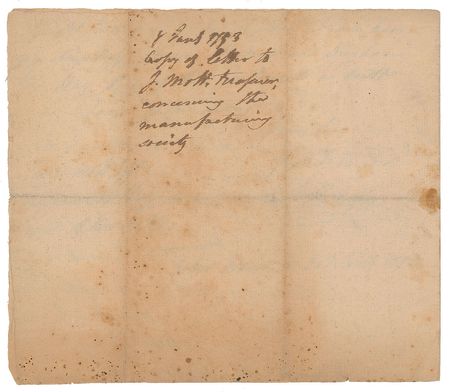 1793
Copy of letter to
J. Mott, treasurer,
concerning the
manufacturing
society